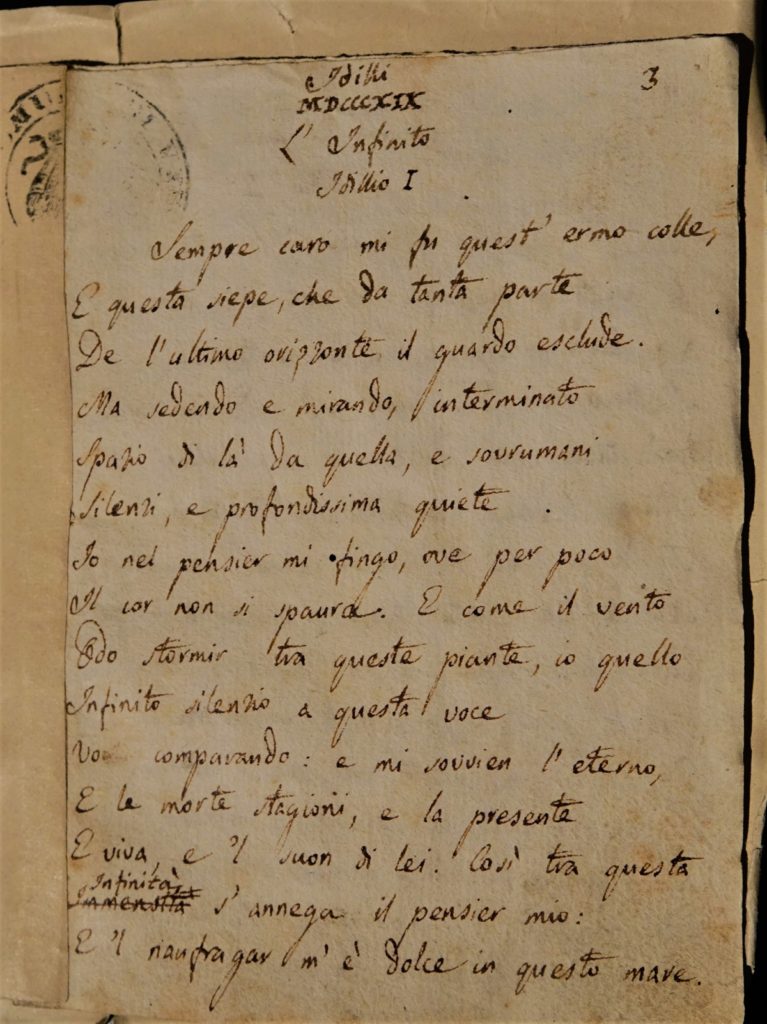 Idilli
MDCCCXIX
3
L' Infinito
Idillio I
Sempre caro mi fu quest' ermo colle,
E questa siepe, che da tanta parte
De l'ultimo orizzonte il guardo esclude.
Ma sedendo e mirando, interminato
Spazio di là da quella, e sovrumani
Silenzi, e profondissima quiete
Io nel pensier mi fingo, ove per poco
Il cor non si spaura. E come il vento
Odo stormir tra queste piante, io quello
Infinito silenzio a questa voce
Vo comparando: e mi sovvien l'eterno,
E le morte stagioni, e la presente
E viva, e 'l suon di lei. Così tra questa
Infinità
Immensità s'annega il pensier mio:
E 'l naufragar m'è dolce in questo mare.